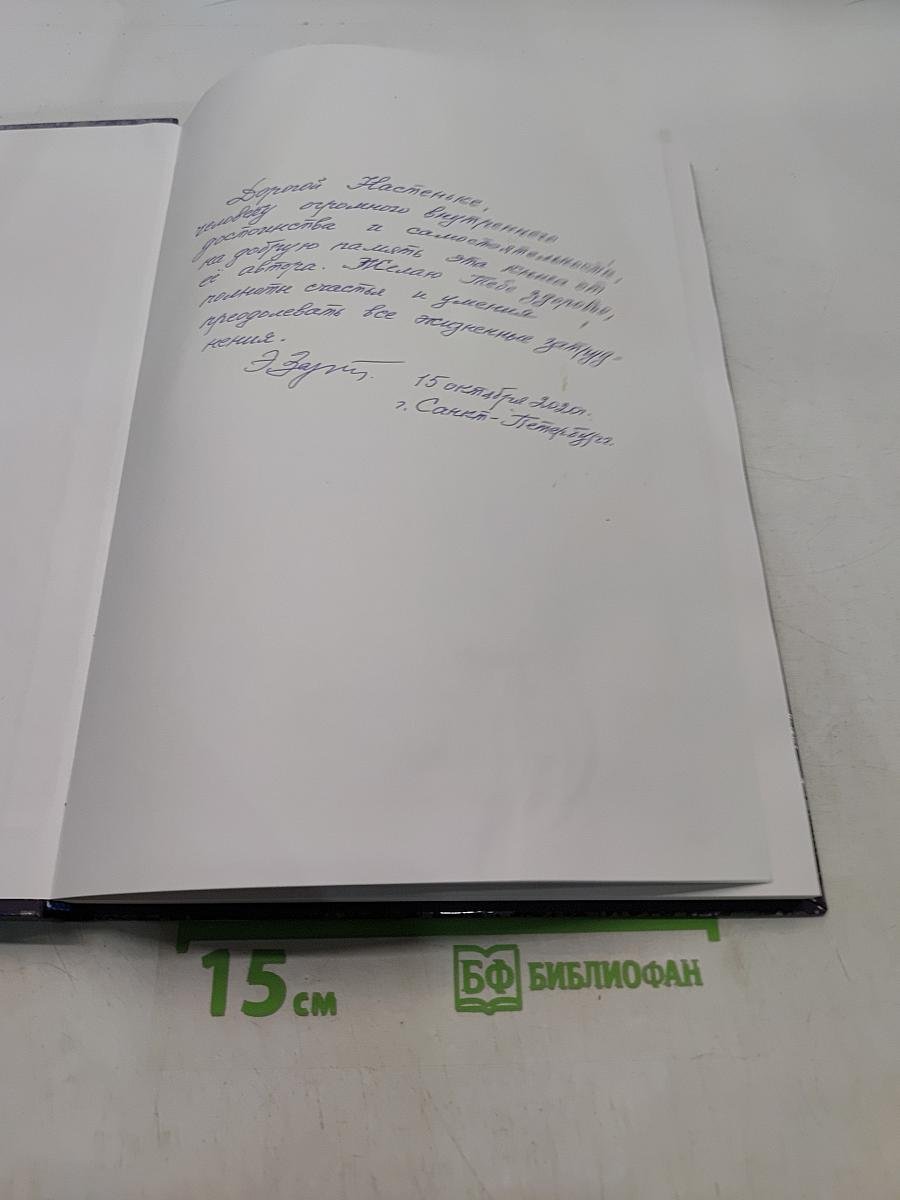 Дорогой Настеньке,
человеку огромного внутреннего
достоинства и самостоятельности,
на добрую память эта книга от
её автора. Желаю Тебе здоровья,
полноты счастья и умения
преодолевать все жизненные затруд-
нения.
15 октября 2020г.
г. Санкт-Петербург.
15 см
БФ БИБЛИОФАН